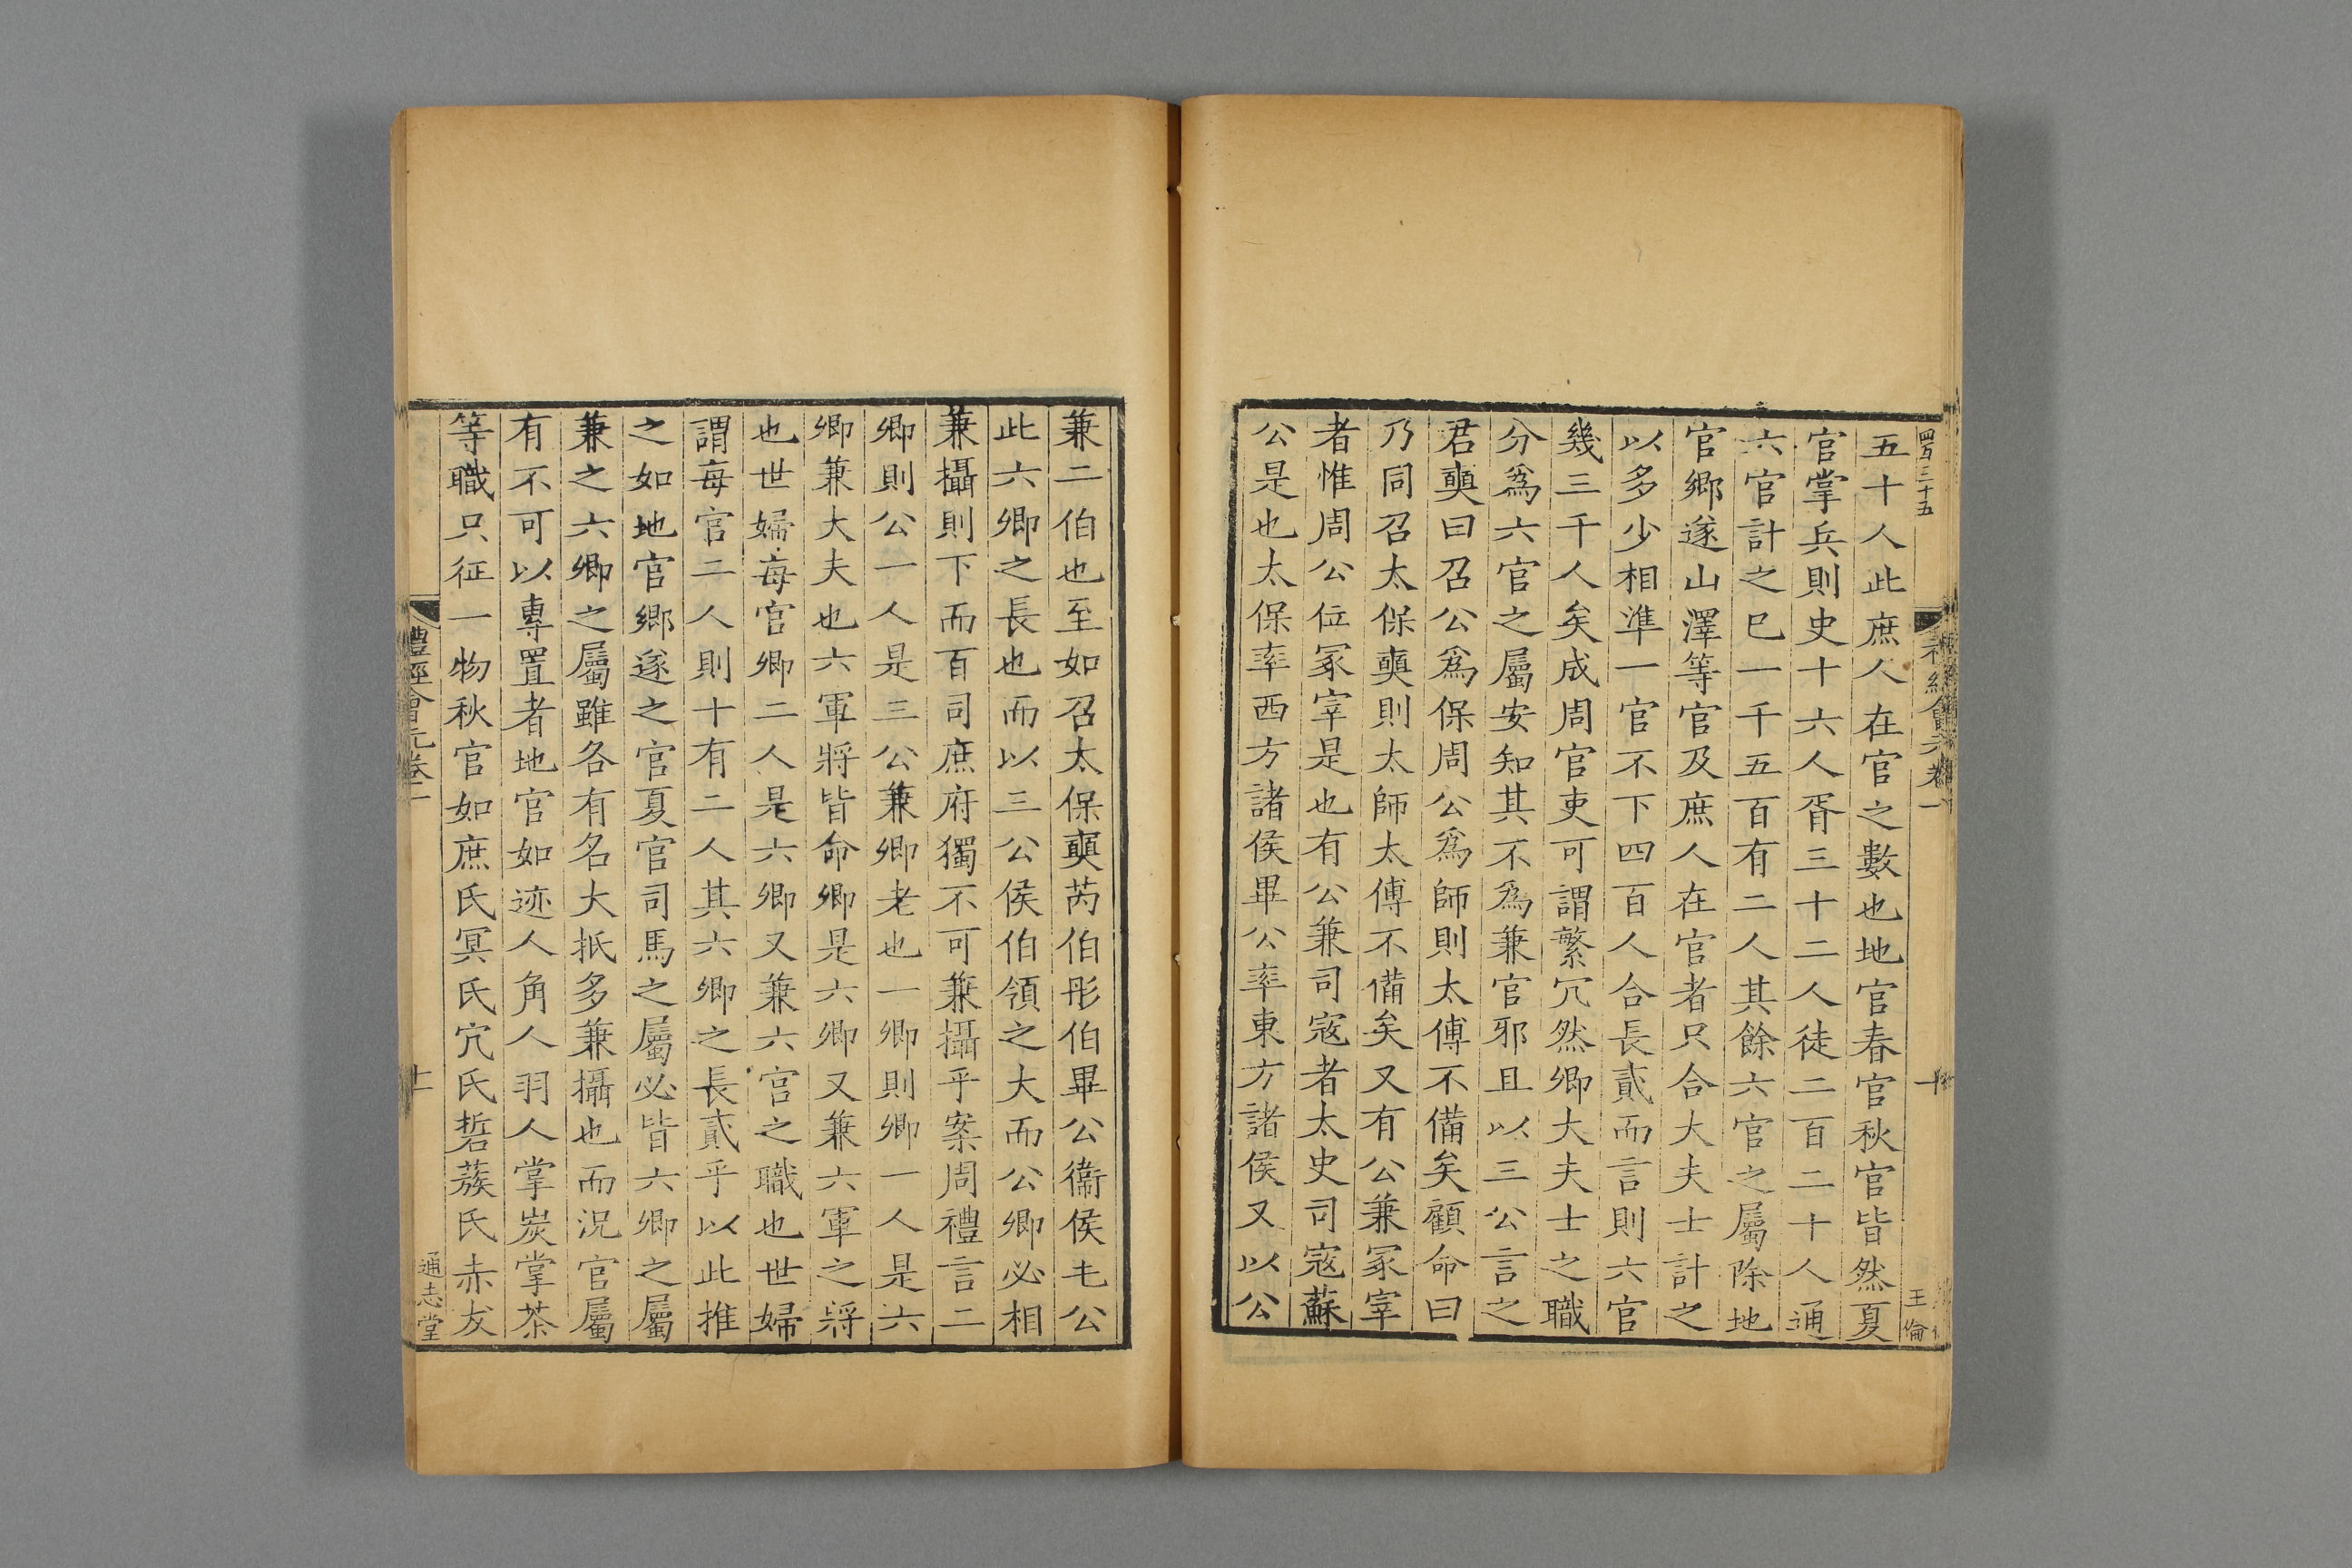 四百三十五
五十人此庶人在官之數也地官春官秋官皆然夏
官掌兵則史十六人胥三十二人徒二百二十人通
六官計之巳一千五百有二人其餘六官之屬除地
官鄉遂山澤等官及庶人在官者只合大夫士計之
以多少相準一官不下四百人合長貳而言則六官
幾三千人矣成周官吏可謂繁冗然卿大夫士之職
分爲六官之屬安知其不爲兼官邪且以三公言之
君奭曰召公爲保周公爲師則太傅不備矣顧命曰
乃同召太保奭則太師太傅不備矣又有公兼冢宰
者惟周公位冢宰是也有公兼司寇者太史司寇蘇
公是也太保率西方諸侯畢公率東方諸侯又以公
王倫
兼二伯也至如召太保奭芮伯彤伯畢公衞侯毛公
此六卿之長也而以三公侯伯領之大而公卿必相
兼攝則下而百司庶府獨不可兼攝乎案周禮言二
鄉則公一人是三公兼鄉老也一鄉則卿一人是六
卿兼大夫也六軍將皆命卿是六卿又兼六軍之將
也世婦每官卿二人是六卿又兼六宮之職也世婦
謂每官二人則十有二人其六卿之長貳乎以此推
之如地官鄉遂之官夏官司馬之屬必皆六卿之屬
兼之六卿之屬雖各有名大抵多兼攝也而況官屬
有不可以專置者地官如迹人角人羽人掌炭掌荼
等職只征一物秋官如庶氏冥氏穴氏硩蔟氏赤犮
禮經會元卷一
十一
通志堂